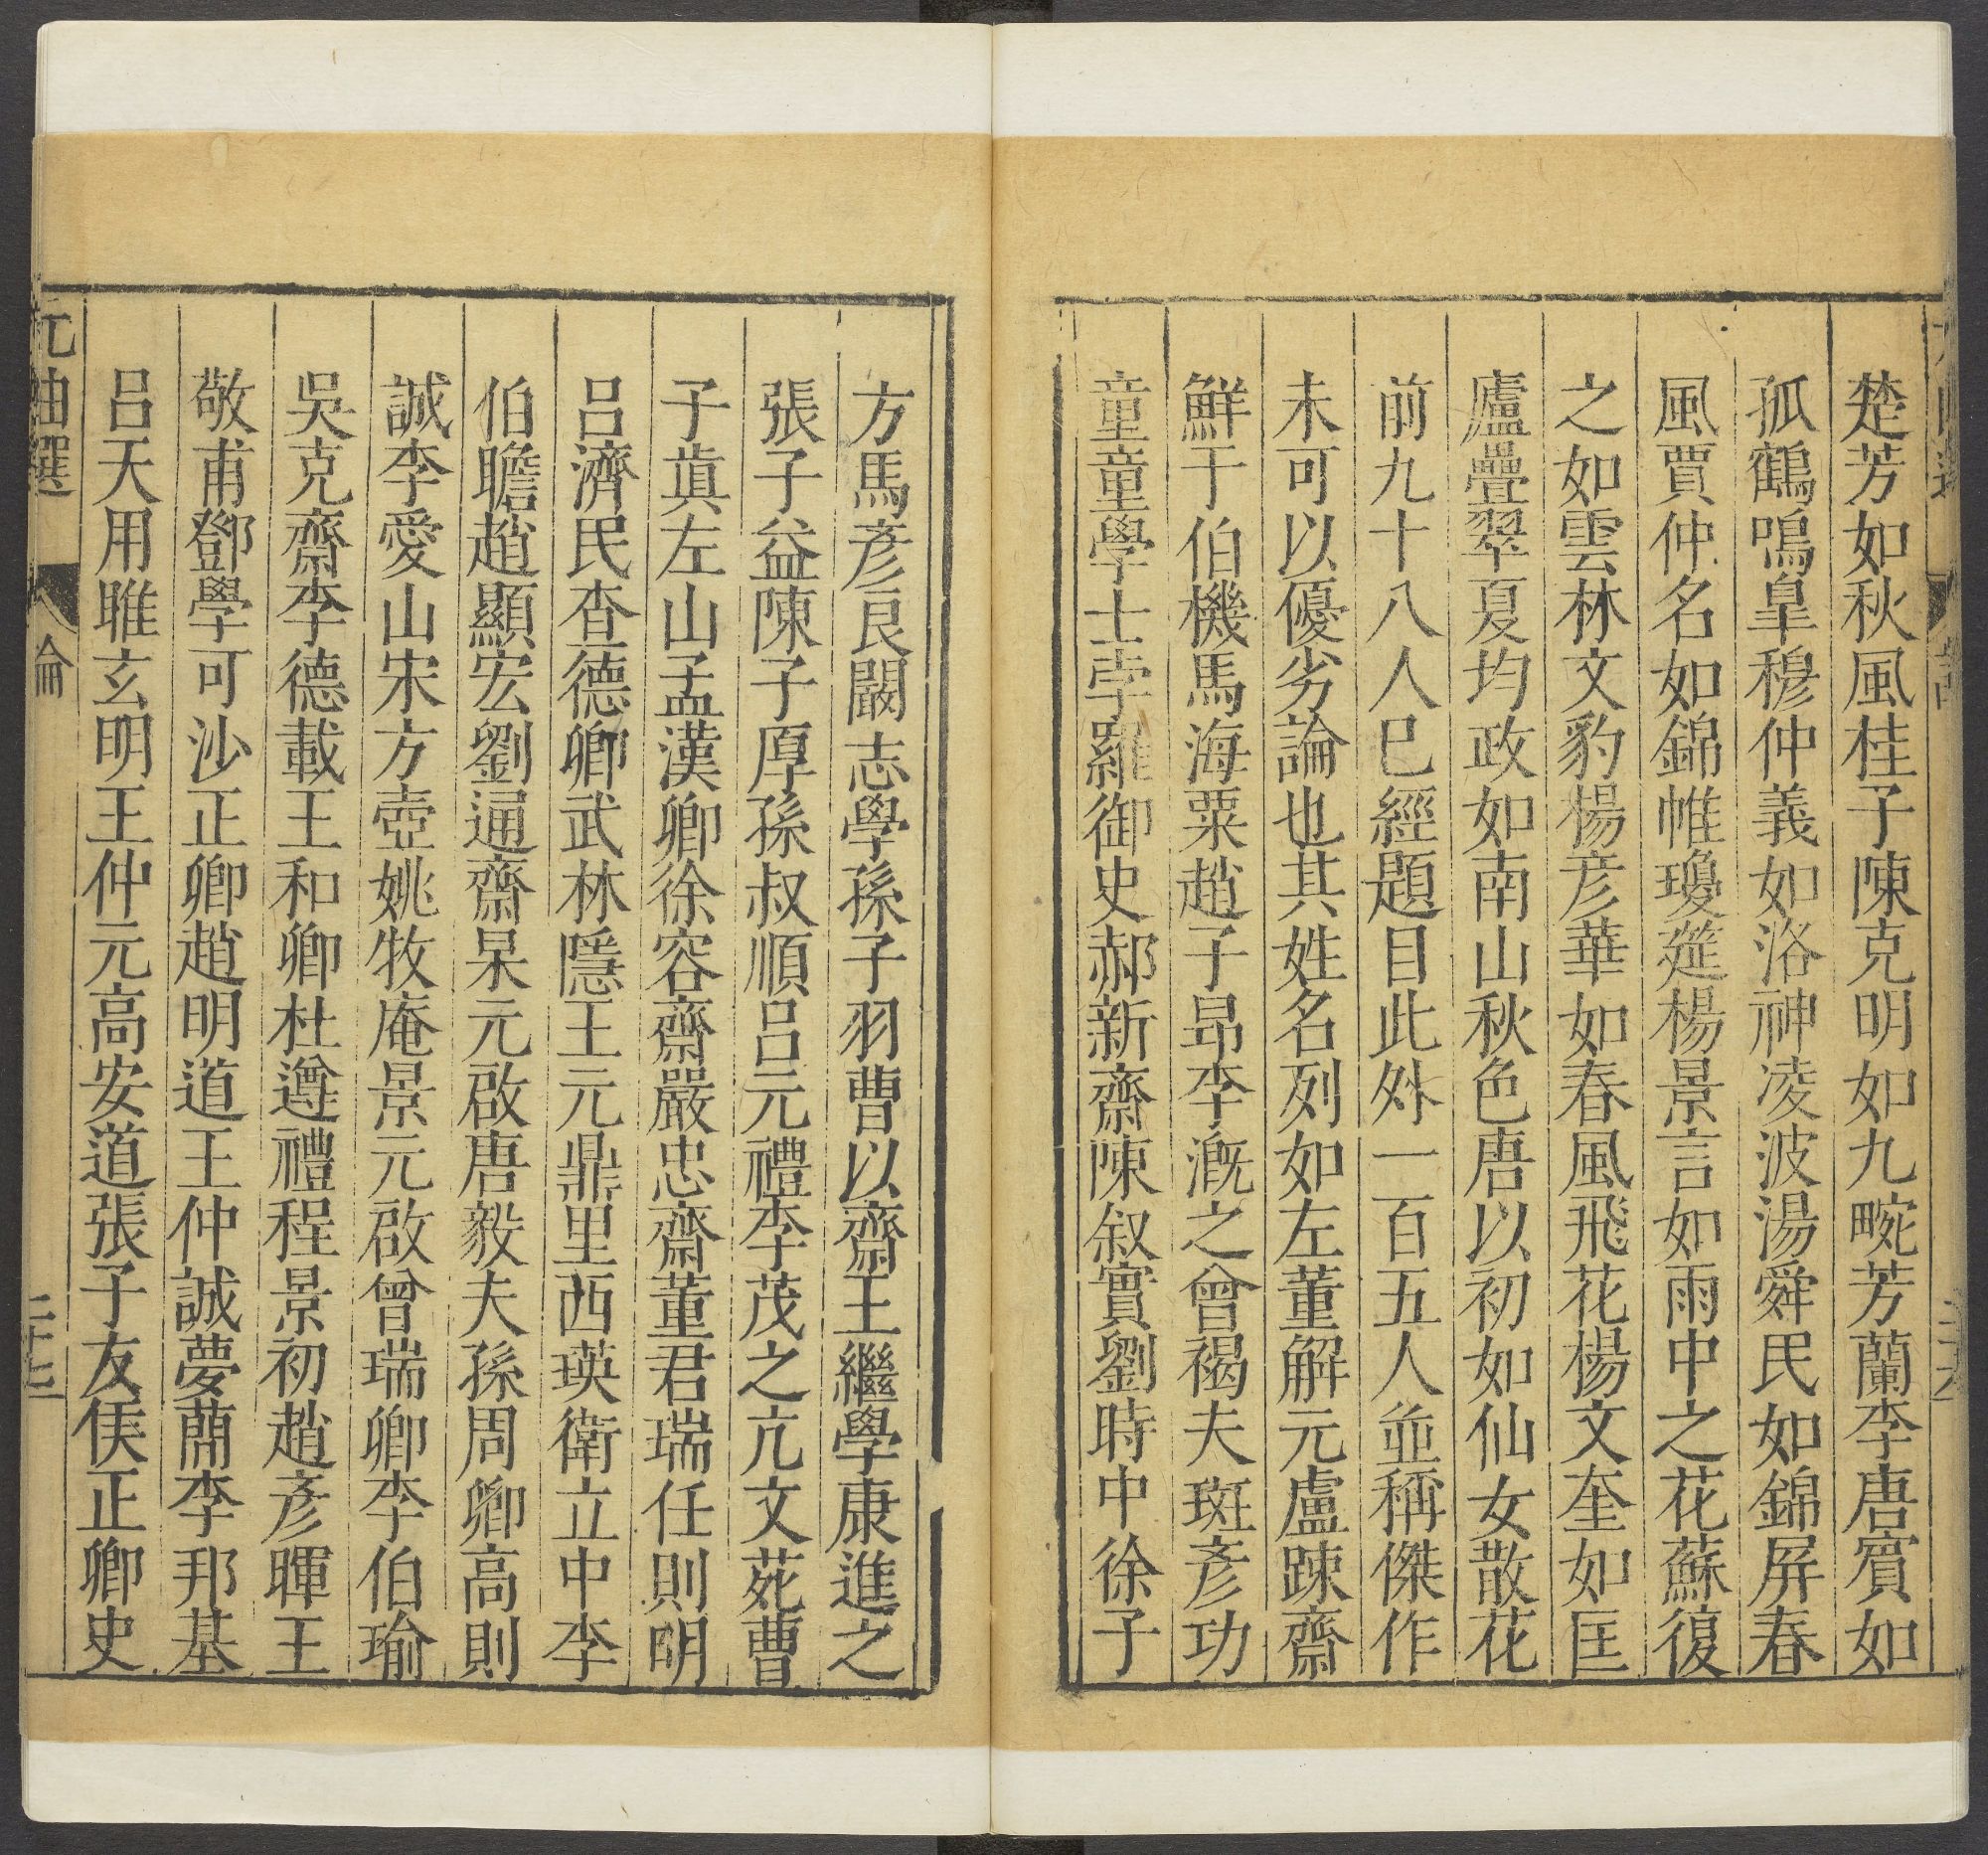 楚芳如秋風桂子陳克明如九畹芳蘭李唐賓如
孤鶴鳴皐穆仲義如洛神凌波湯舜民如錦屏春
風賈仲名如錦帷瓊筵楊景言如雨中之花蘇復
之如雲林文豹楊彦華如春風飛花楊文奎如匡
廬疊翠夏均政如南山秋色唐以初如仙女散花
前九十八人巳經題目此外一百五人並稱傑作
未可以優劣論也其姓名列如左董解元盧踈齋
鮮于伯機馬海粟趙子昂李漑之曾褐夫斑彦功
童童學士孛羅御史郝新齋陳叙實劉時中徐子
方馬彦良闞志學孫子羽曹以齋王繼學康進之
張子益陳子厚孫叔順呂元禮李茂之亢文苑曹
子眞左山孟漢卿徐容齋嚴忠齋董君瑞任則明
呂濟民查德卿武林隱王元鼎里西瑛衛立中李
伯瞻趙顯宏劉逋齋杲元啟唐毅夫孫周卿高則
誠李愛山宋方壺姚牧庵景元啟曾瑞卿李伯瑜
吳克齋李德載王和卿杜遵禮程景初趙彦暉王
敬甫鄧學可沙正卿趙明道王仲誠夢蕳李邦基
呂天用睢玄明王仲元高安道張子友侯正卿史
元曲選
論
二十七